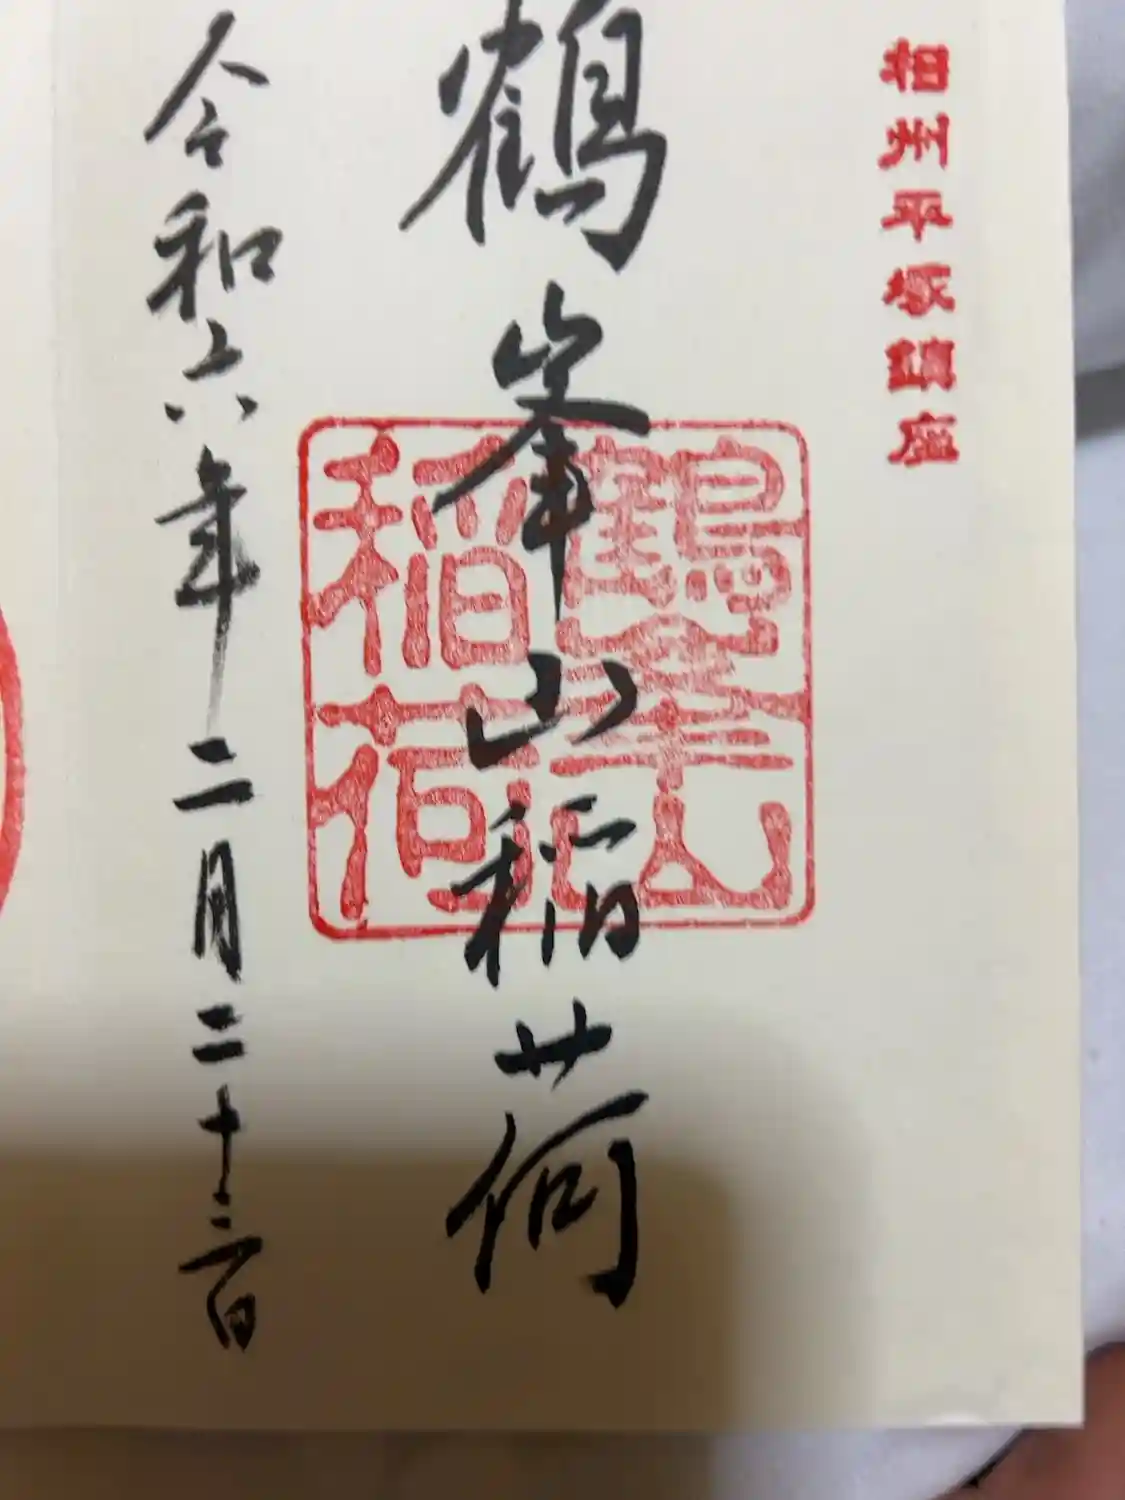 相州平塚鎮座
鶴峯山稲荷
鶴峯山
稲荷
令和六年二月二十三日